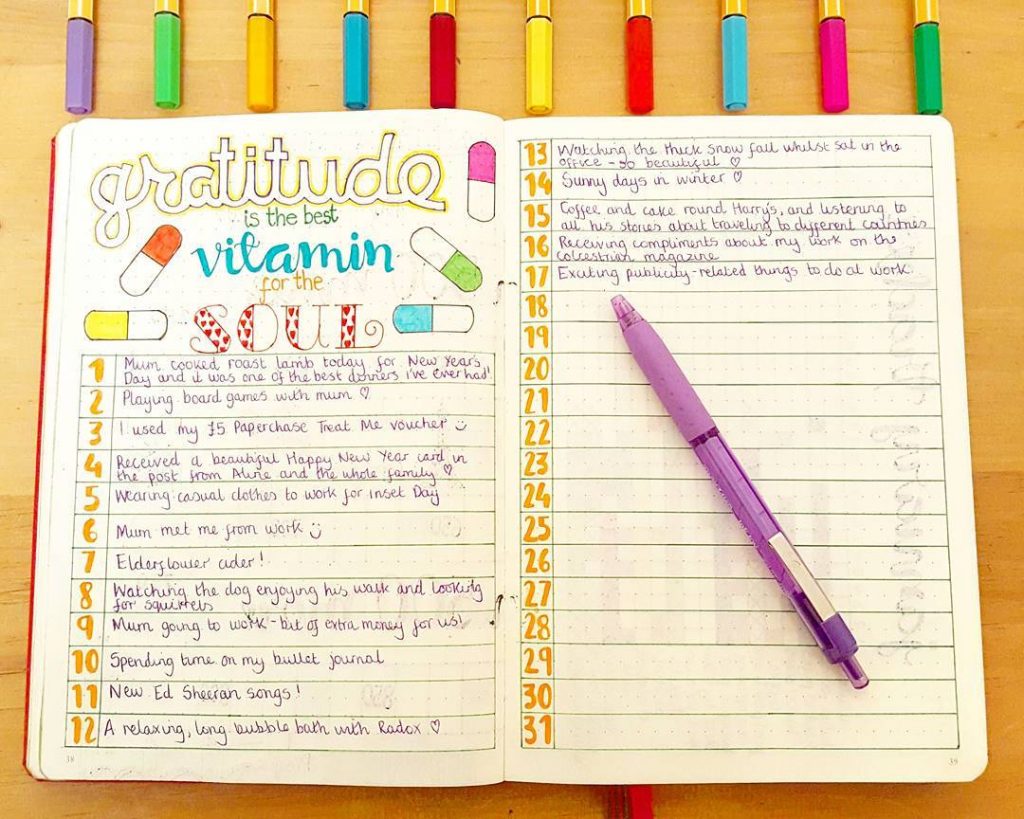 gratitude
is the best
vitamin
for the
SOUL
1 Mum cooked roast lamb today for New Year's
Day and it was one of the best dinners i've ever had!
2 Playing board games with mum ♡
3 I used my £5 Paperchase Treat Me voucher :)
4 Received a beautiful Happy New Year card in
the post from Aline and the whole family ♡
5 Wearing casual clothes to work for Inset Day
6 Mum met me from work :)
7 Elderflower cider!
8 Watching the dog enjoying his walk and looking
for squirrels
9 Mum going to work - bit of extra money for us!
10 Spending time on my bullet journal
11 New Ed Sheeran songs!
12 A relaxing, long bubble bath with Radox ♡
38
13 Watching the thick snow fall whilst sat in the
office - so beautiful ♡
14 Sunny days in winter ♡
15 Coffee and cake round Harry's, and listening to
all his stories about traveling to different countries
16 Receiving compliments about my work on the
colcestrian magazine
17 Exciting publicity-related things to do at work.
18
19
20
21
22
23
24
25
26
27
28
29
30
31
39